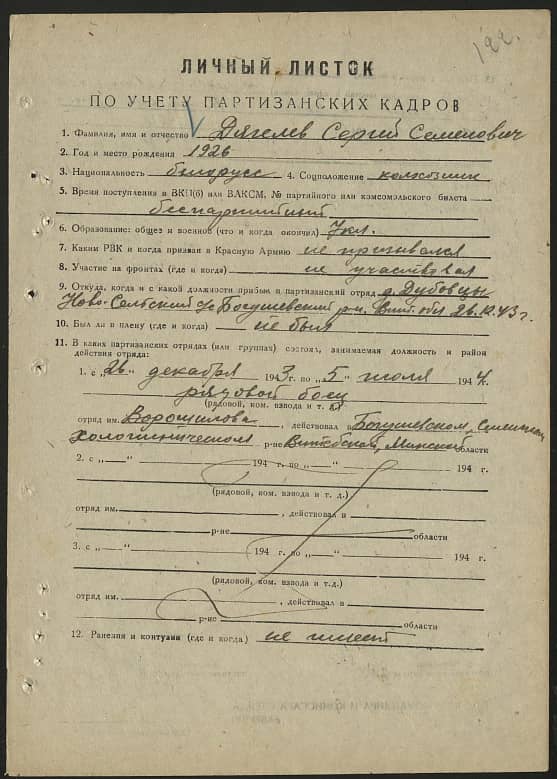 122.
ЛИЧНЫЙ ЛИСТОК
ПО УЧЕТУ ПАРТИЗАНСКИХ КАДРОВ
1. Фамилия, имя и отчество Дягелев Сергей Семенович
2. Год и место рождения 1926
3. Национальность белорусс 4. Соцположение колхозник
5. Время поступления в ВКП(б) или ВЛКСМ, № партийного или комсомольского билета
беспартийный
6. Образование: общее и военное (что и когда окончил) 7 кл.
7. Каким РВК и когда призван в Красную Армию не призывался
8. Участие на фронтах (где и когда) не участвовал
9. Откуда, когда и с какой должности прибыл в партизанский отряд д. Дубовцы
Ново-Сельский с/с Богушевский р-н, Вит. обл 26.12.43 г.
10. Был ли в плену (где и когда) не был
11. В каких партизанских отрядах (или группах) состоял, занимаемая должность и район
действия отряда:
1. с „26" декабря 1943 г. по „5" июля 1944 г.
рядовой боец
(рядовой, ком. взвода и т. д.)
отряд им. Ворошилова, действовал в Богушевском,
Холопиническом р-не Витебской, Минской области
2. с „—" 194 г. по „—" 194 г.
(рядовой, ком. взвода и т. д.)
отряд им. , действовал в
р-не области
3. с „—" 194 г. по „—" 194 г.
(рядовой, ком. взвода и т.д.)
отряд им. , действовал в
р-не области
12. Ранения и контузии (где и когда) не имеет